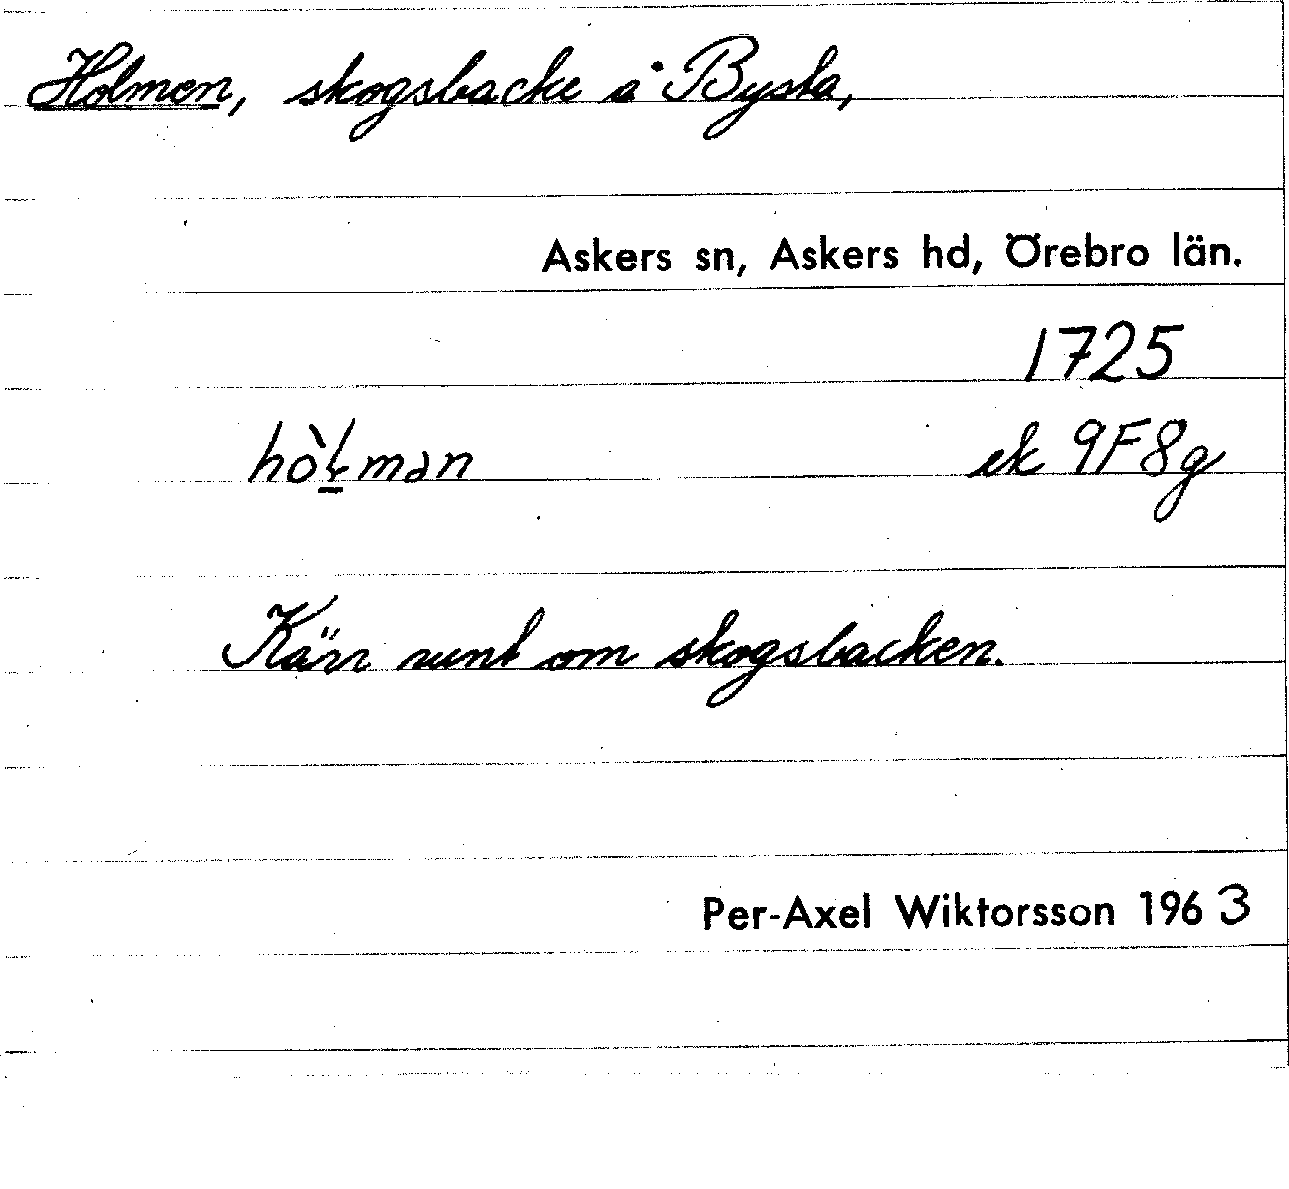 Holmen, skogsbacke å Bysta,
Askers sn, Askers hd, Örebro län.
1725
hò̀ł̱mən ek 9F8g
Kärr runt om skogsbacken.
Per-Axel Wiktorsson 1963